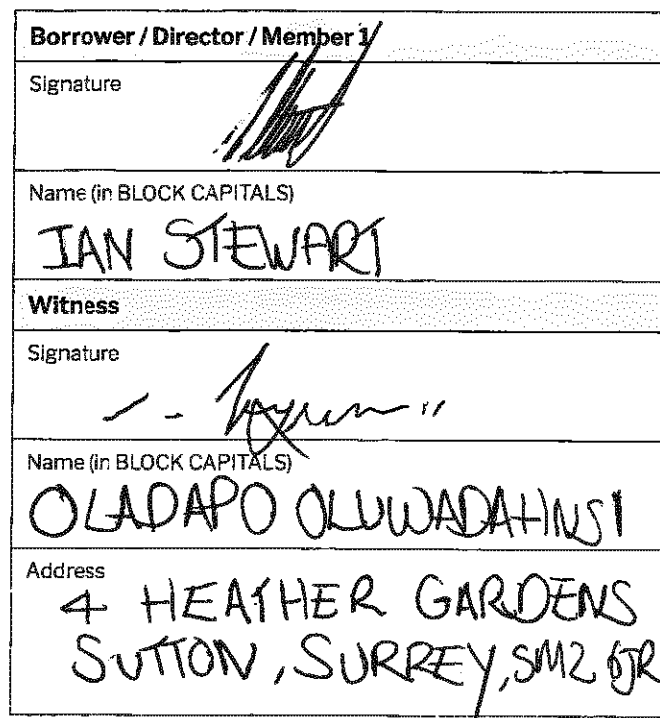 Borrower / Director / Member 1
Signature
Name (in BLOCK CAPITALS)
IAN STEWART
Witness
Signature
Name (in BLOCK CAPITALS)
OLADAPO
Address
4 HEATHER GARDENS
SUTTON, SURREY, SM2 6JR